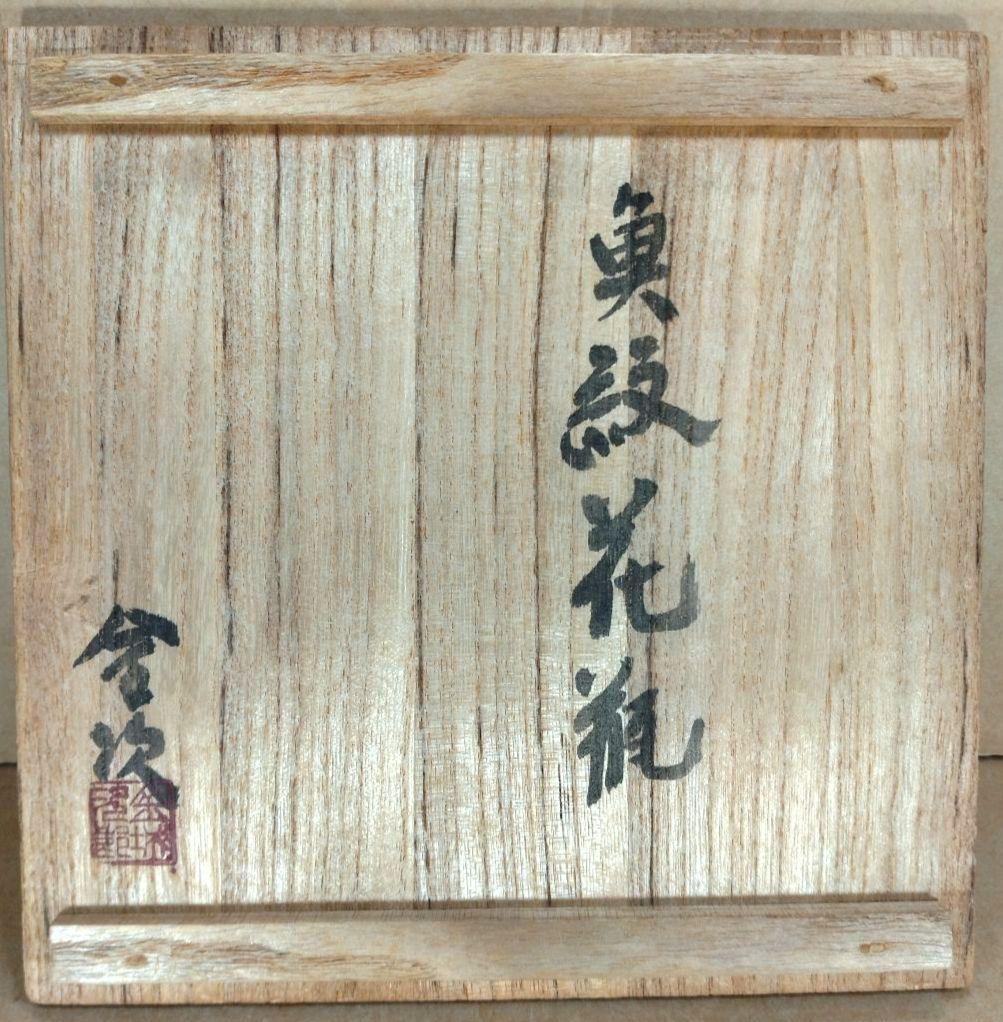 魚紋花瓶
金次